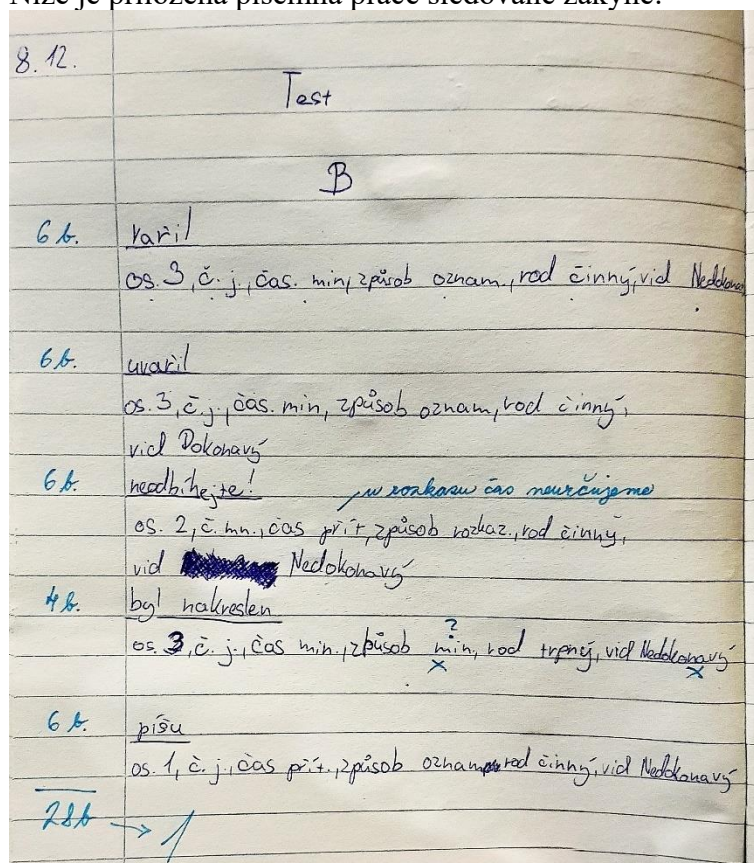 Níže je přiložena písemná práce sledované žákyně:
8. 12.
Test
B
6 b. Vařil
os. 3, č. j., čas. min, způsob oznam., rod činný, vid Nedokonav
6 b. uvařil
os. 3, č. j., čas. min, způsob oznam, rod činný,
vid Dokonavý
6 b. neodbíhejte!
u rozkazu čas neurčujeme
os. 2, č. mn., čas přít, způsob rozkaz., rod činný,
vid Nedokonavý
4 b. byl nakreslen
?
os. 3, č. j., čas min., způsob min, rod trpný, vid Nedokonavý
x x
6 b. píšu
os. 1, č. j., čas přít., způsob oznam rod činný, vid Nedokonavý
28b → 1